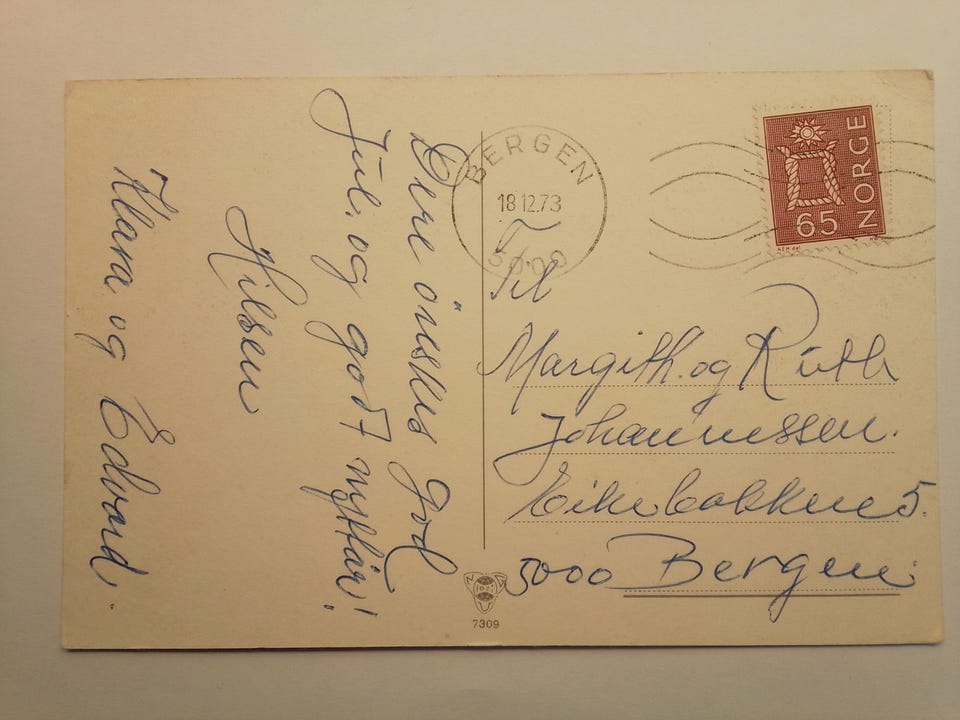 Dere önskes God
Jul. og godt nyttår!
Hilsen
Klara og Edvard.
BERGEN
18 12.73
5000
NORGE
65
Til
Margith. og Ruth
Johannessen.
Eikebakken 5.
5000 Bergen.
7309